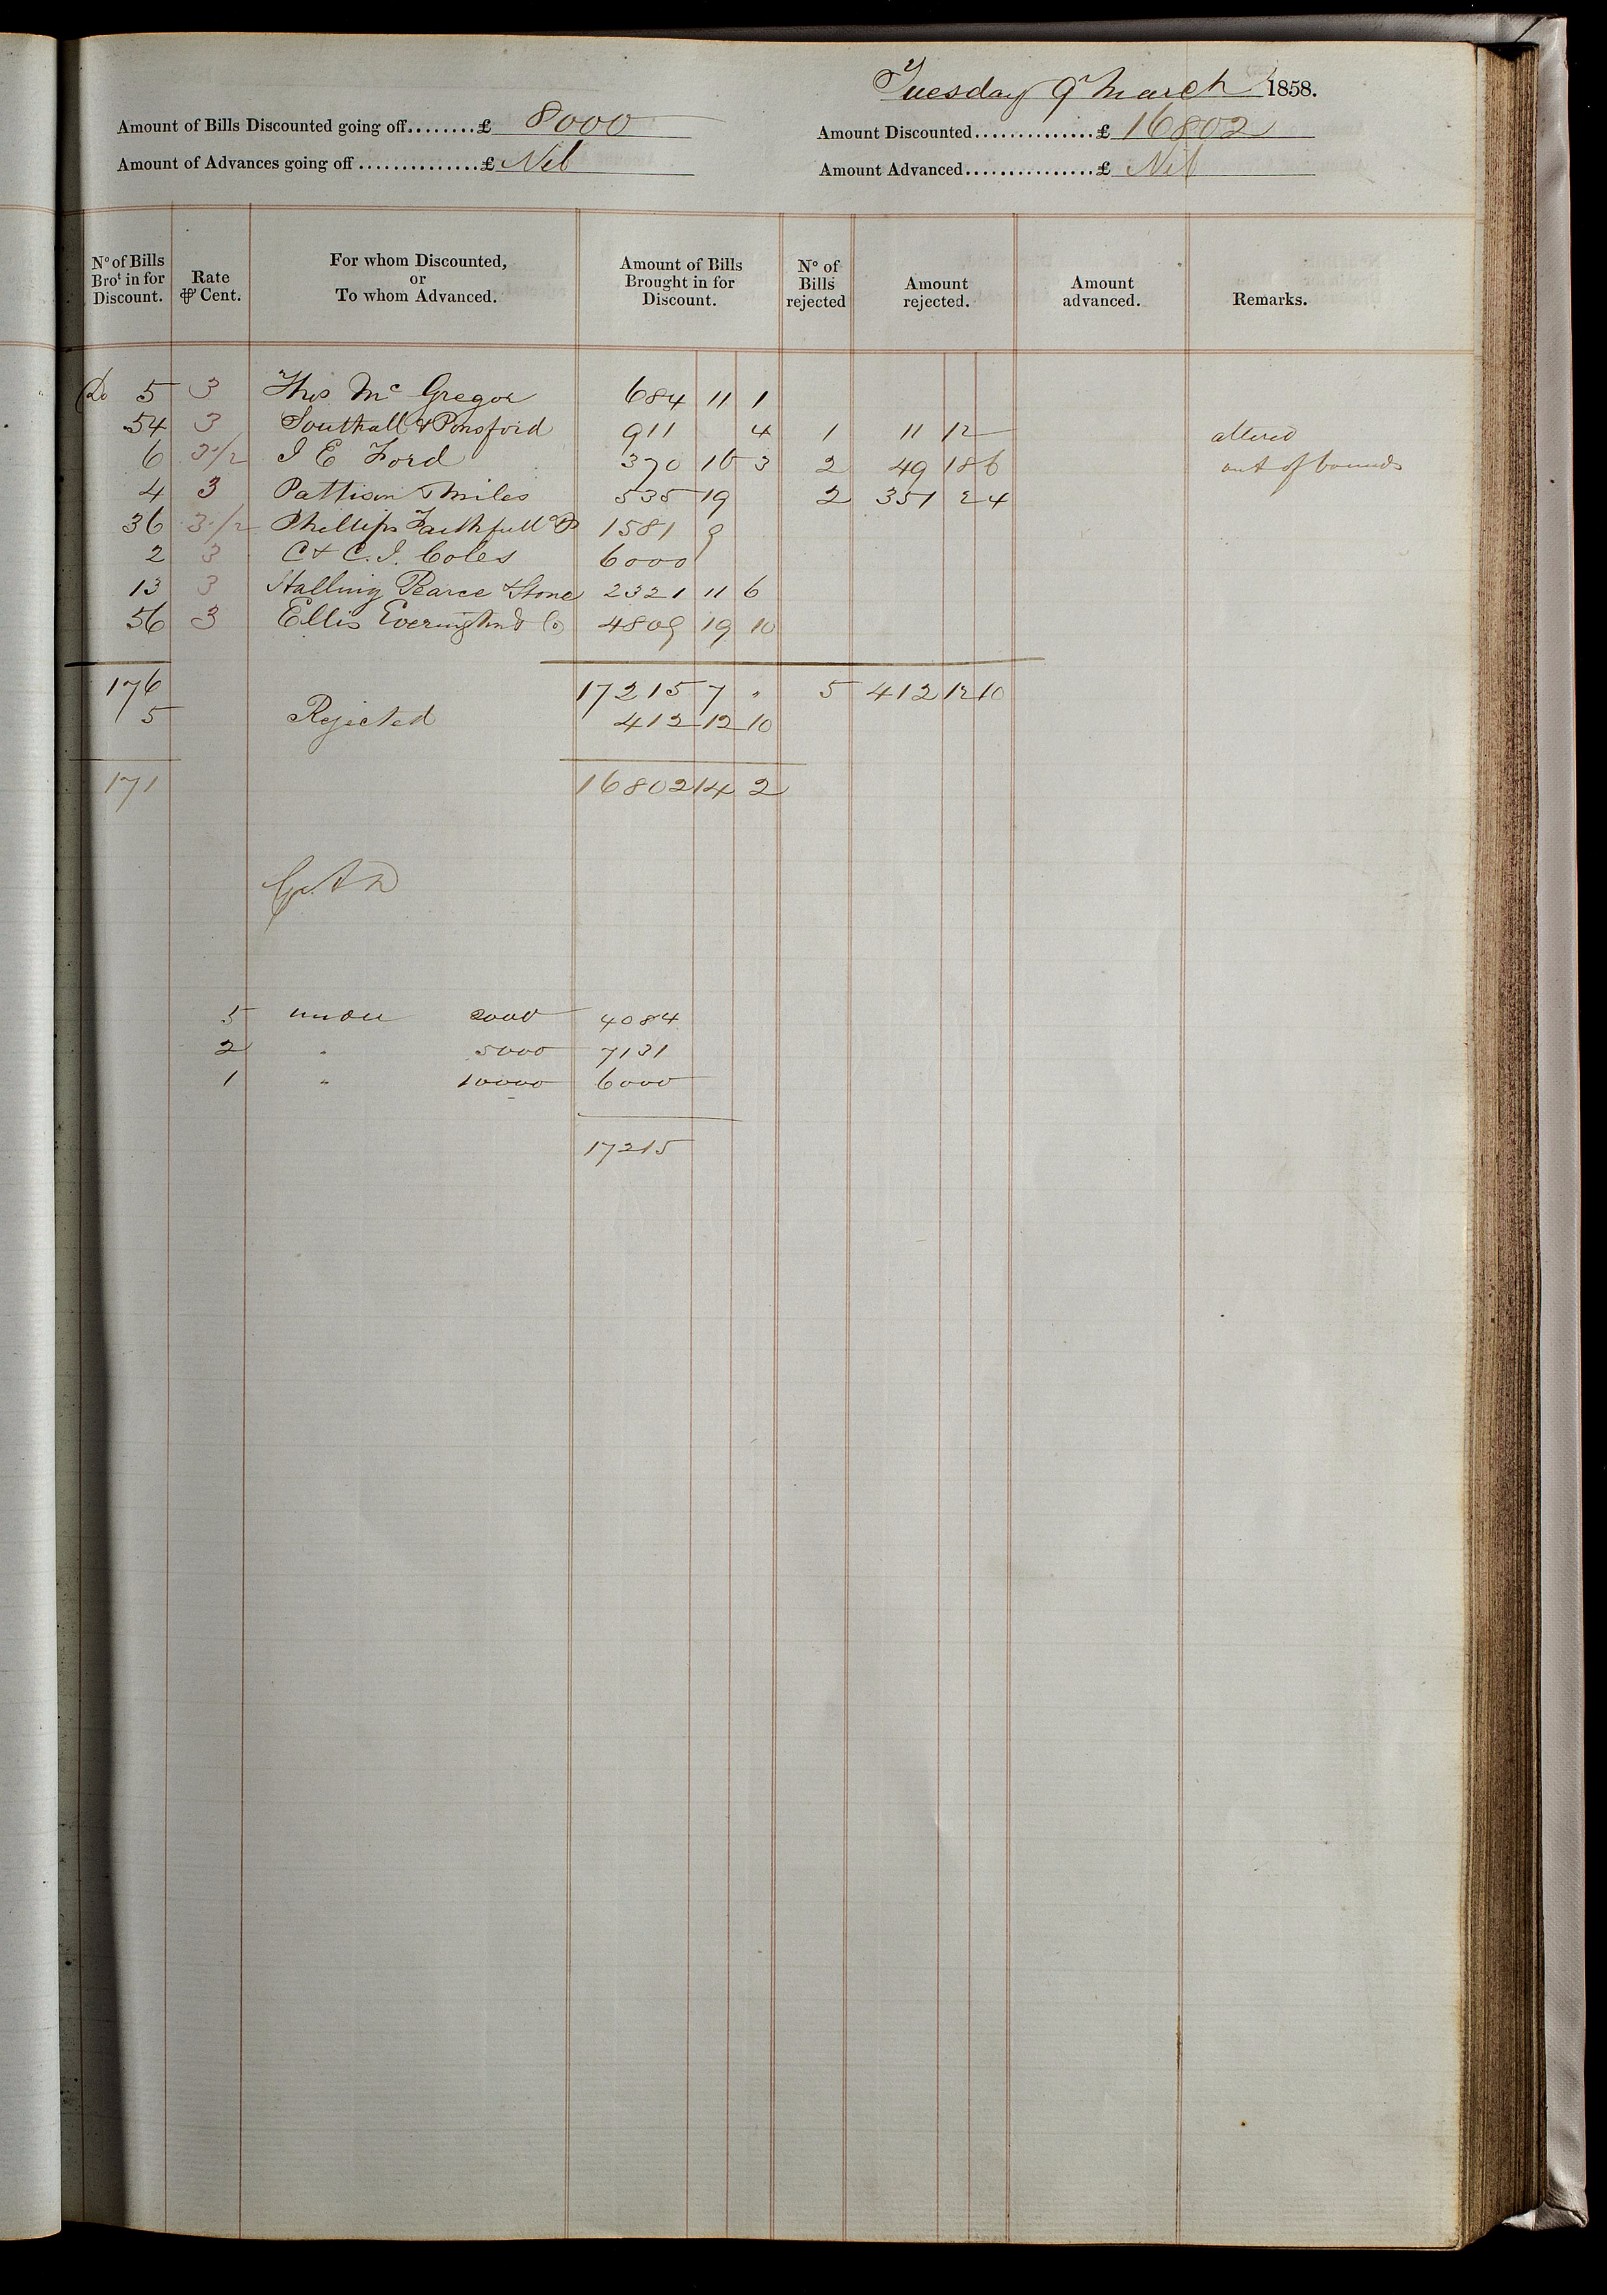 Tuesday 9 March 1858.
Amount of Bills Discounted going off........£ 8000 Amount Discounted..............£ 16802
Amount of Advances going off..............£ Nil Amount Advanced...............£ Nil
Nº of Bills Broᵗ in for Discount. Rate ⅌ Cent. For whom Discounted, or To whom Advanced. Amount of Bills Brought in for Discount. Nº of Bills rejected Amount rejected. Amount advanced. Remarks.
Do 5 3 Thos Mc Gregor 684 11 1
54 3 Southall & Ponsford 911 4 1 11 12 altered
6 3 1/2 J E Ford 370 16 3 2 49 18 6 out of bounds
4 3 Pattison & Miles 535 19 2 351 2 4
36 3 1/2 Phillips Faithfull & P 1581 9
2 3 C & C. J. Coles 6000
13 3 Stalling Pearce & Stone 2321 11 6
56 3 Ellis Everington & Co 4809 19 10
176 17215 7 " 5 412 12 10
5 Rejected 412 12 10
171 16802 14 2
5 under 2000 4084
2 " 5000 7131
1 " 10000 6000
17215